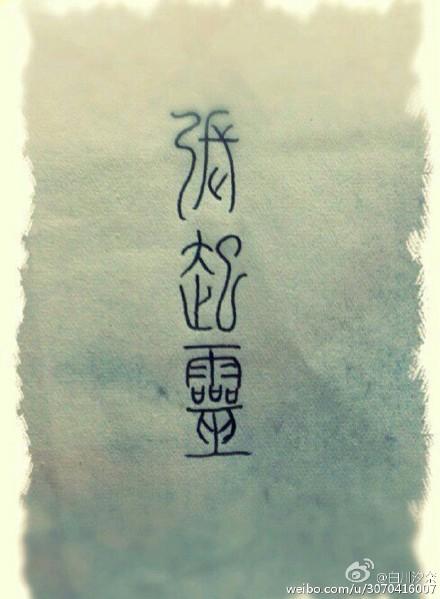 張起靈
@白川汐奈
weibo.com/u/3070416007